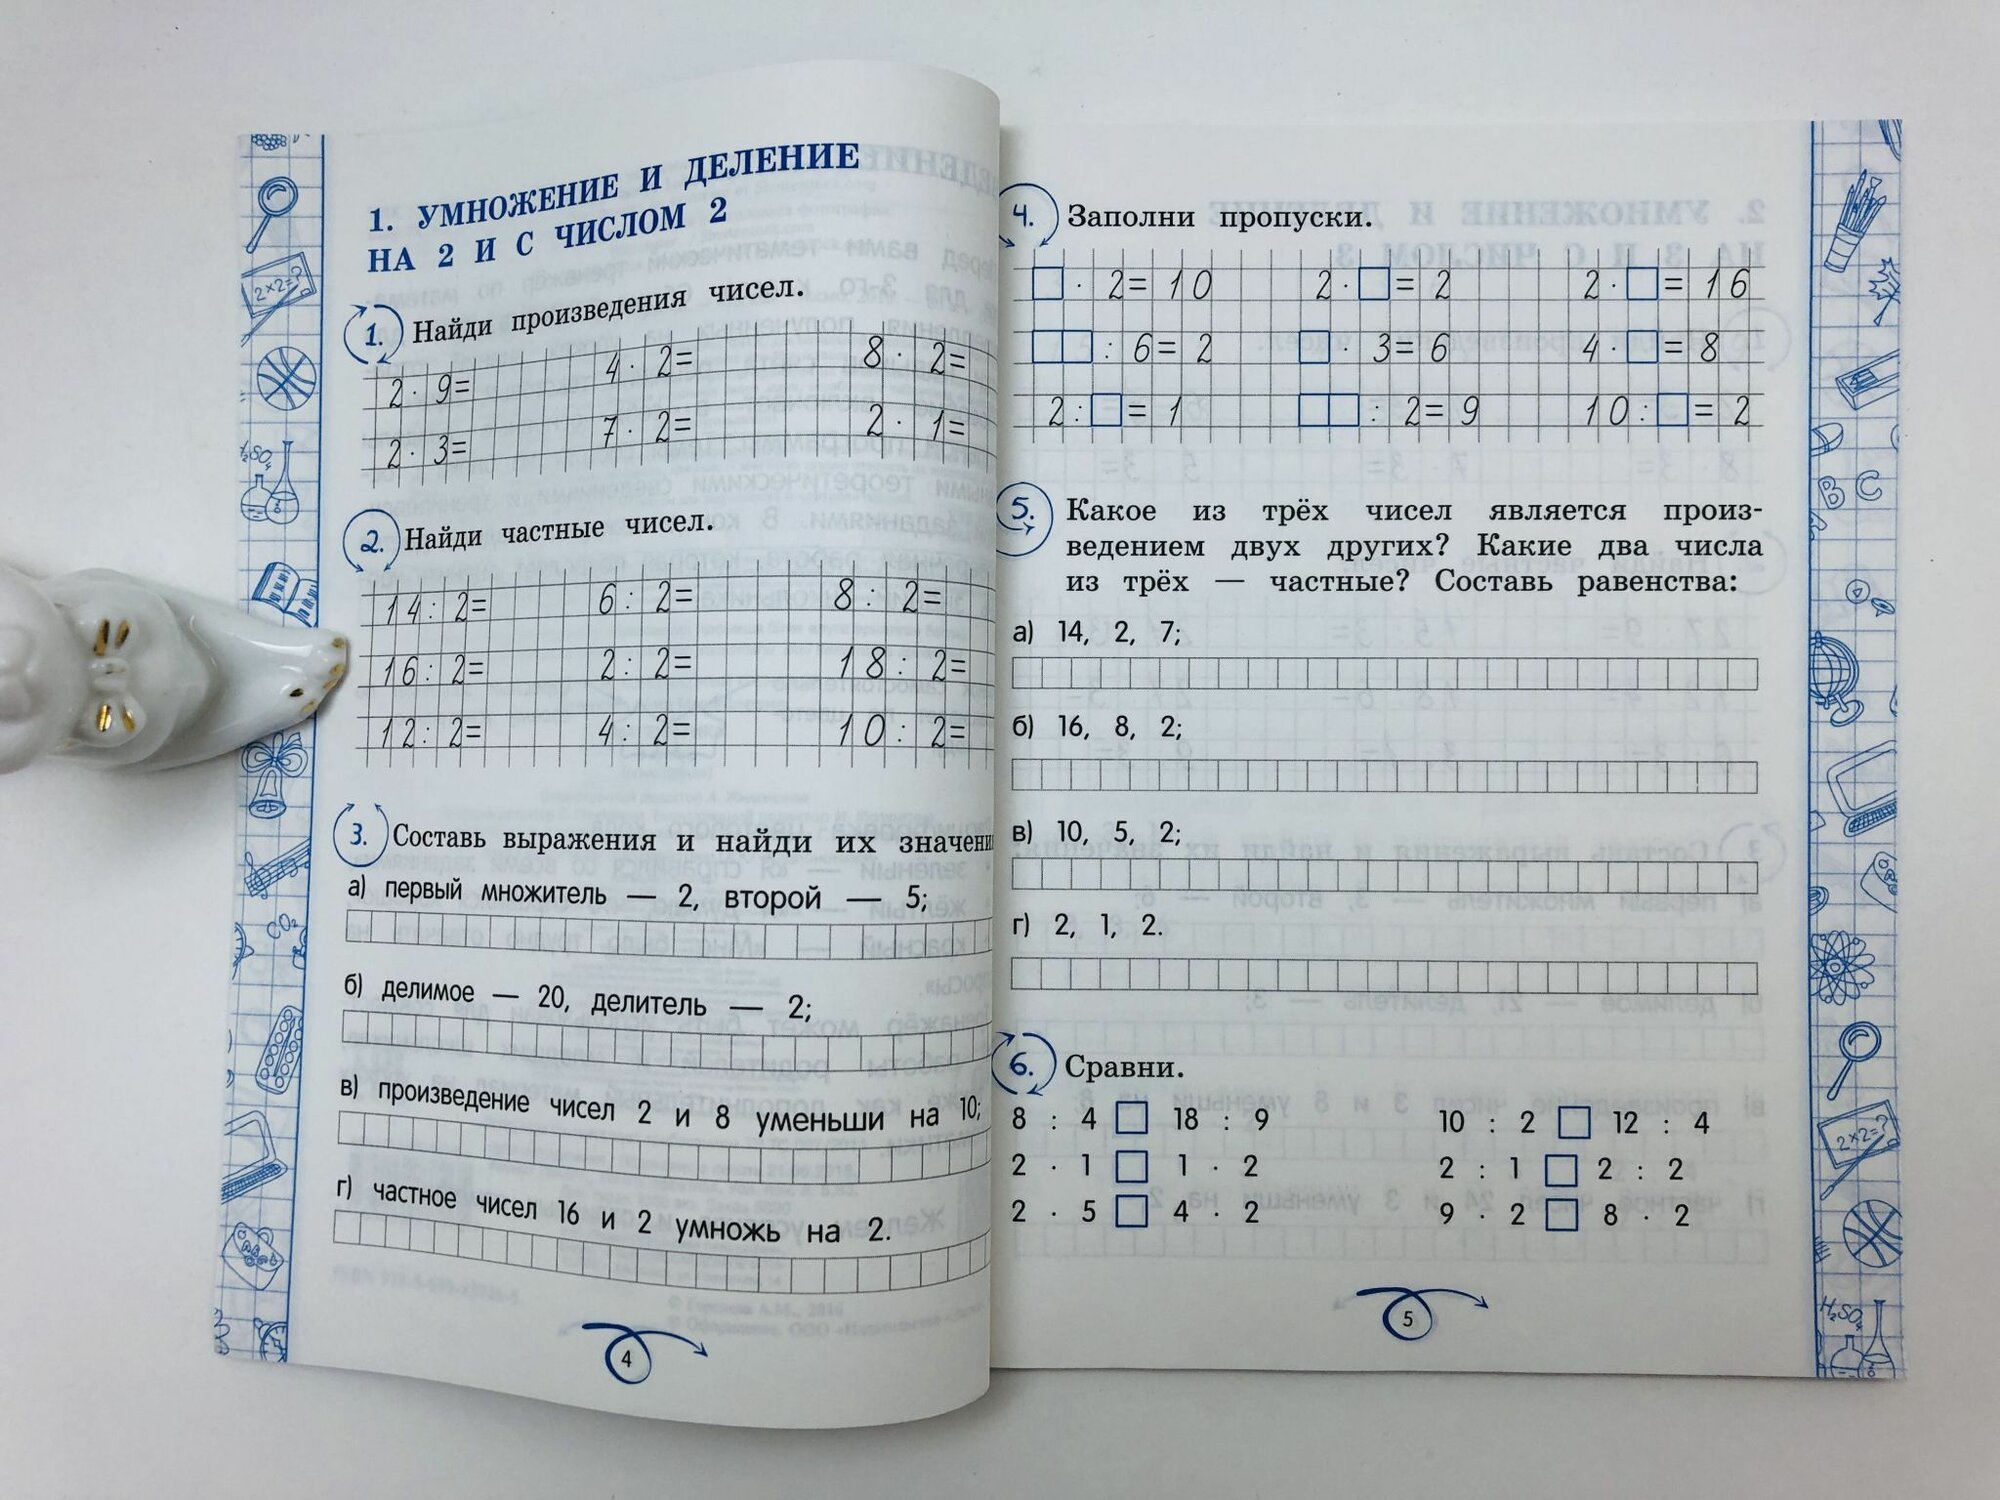 1. УМНОЖЕНИЕ И ДЕЛЕНИЕ
НА 2 И С ЧИСЛОМ 2
1. Найди произведения чисел.
2 · 9= 4 · 2= 8 · 2=
2 · 3= 7 · 2= 2 · 1=
2. Найди частные чисел.
14 : 2= 6 : 2= 8 : 2=
16 : 2= 2 : 2= 18 : 2=
12 : 2= 4 : 2= 10 : 2=
3. Составь выражения и найди их значени
а) первый множитель — 2, второй — 5;
б) делимое — 20, делитель — 2;
в) произведение чисел 2 и 8 уменьши на 10;
г) частное чисел 16 и 2 умножь на 2.
4
4. Заполни пропуски.
□ · 2= 10 2 · □ = 2 2 · □ = 16
□□ : 6= 2 □ · 3= 6 4 · □ = 8
2 : □ = 1 □□ : 2= 9 10 : □ = 2
5. Какое из трёх чисел является произ-
ведением двух других? Какие два числа
из трёх — частные? Составь равенства:
а) 14, 2, 7;
б) 16, 8, 2;
в) 10, 5, 2;
г) 2, 1, 2.
6. Сравни.
8 : 4 □ 18 : 9 10 : 2 □ 12 : 4
2 · 1 □ 1 · 2 2 : 1 □ 2 : 2
2 · 5 □ 4 · 2 9 · 2 □ 8 · 2
5
2×2=?
H₂SO₄
CO₂
B C
2×2=?
H₂SO₄